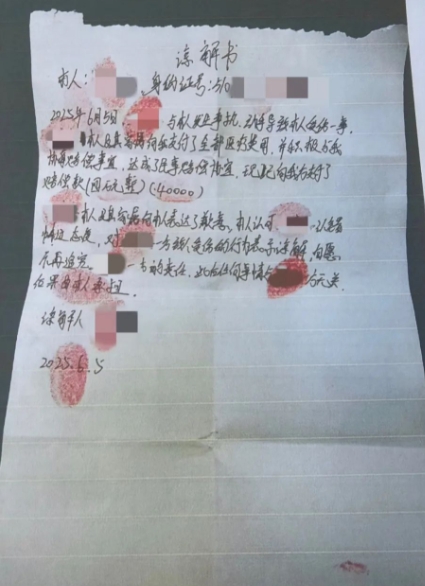 谅解书
本人: 身份证号:510
2025年6月5日 与本人发生争执,动手导致本人受伤一事,
本人及其家属向我支付了全部医疗费用,并积极与我
赔偿事宜,达成了民事赔偿协定,现已向我支付了
赔偿款(四万元整)(40000)
与本人及其家属向本人表达了歉意,本人认可
态度,对 一方致人受伤的行为表示谅解,自愿
不再追究 一方的责任,此后任何事情与 方无关
后果由本人承担.
谅解人
2025.6.5